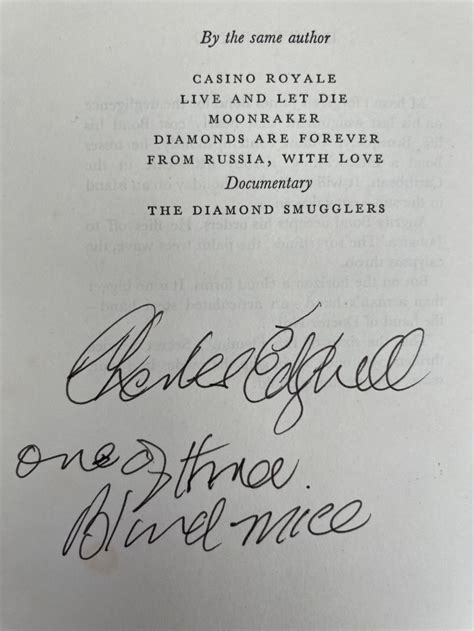 By the same author
CASINO ROYALE
LIVE AND LET DIE
MOONRAKER
DIAMONDS ARE FOREVER
FROM RUSSIA, WITH LOVE
Documentary
THE DIAMOND SMUGGLERS
Charles Edghill
one of three
Blind mice